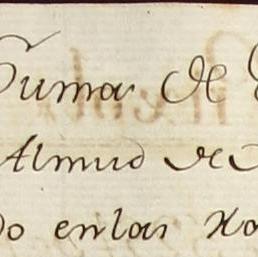 Suma de
Almud de
do enlas